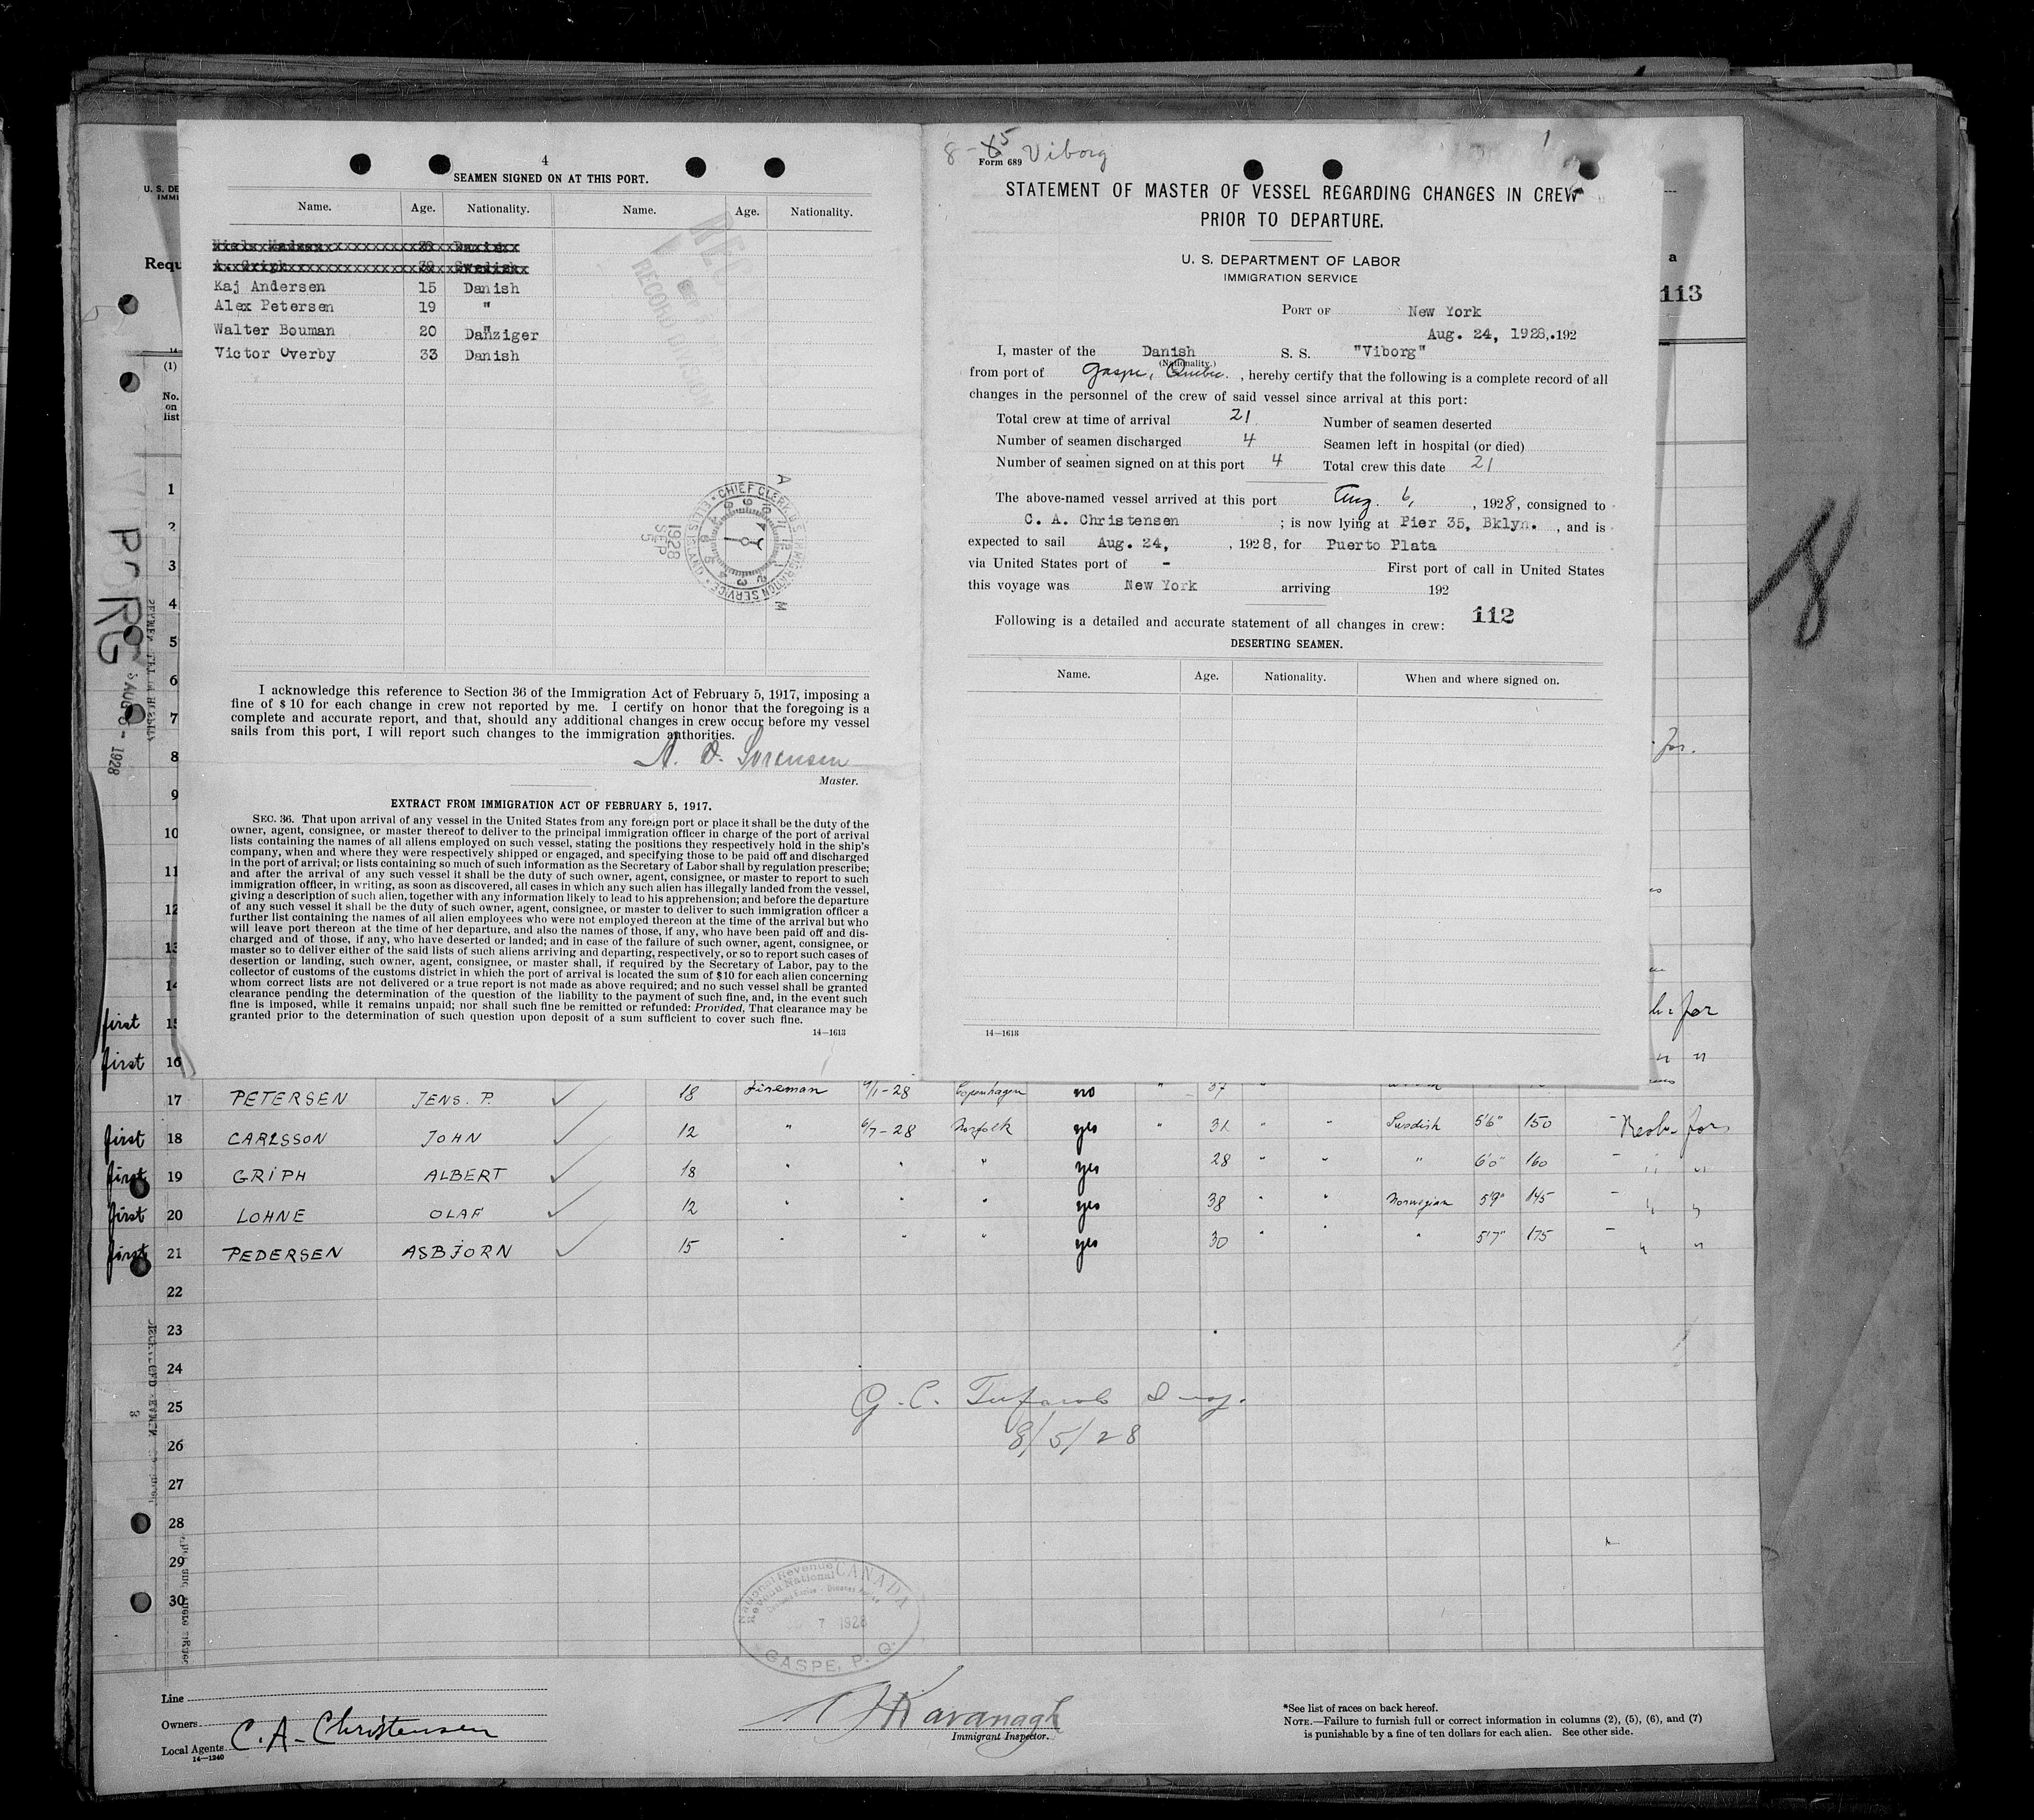 4
SEAMEN SIGNED ON AT THIS PORT.
Name. Age. Nationality. Name. Age. Nationality.
Kaj Andersen 15 Danish
Alex Petersen 19 "
Walter Bouman 20 Danziger
Victor Overby 33 Danish
CHIEF CLERK, U.S. IMMIGRATION SERVICE
ELLIS ISLAND
1928 SEP 5
RECORD DIVISION
I acknowledge this reference to Section 36 of the Immigration Act of February 5, 1917, imposing a
fine of $10 for each change in crew not reported by me. I certify on honor that the foregoing is a
complete and accurate report, and that, should any additional changes in crew occur before my vessel
sails from this port, I will report such changes to the immigration authorities.
A. O. Sorensen
Master.
EXTRACT FROM IMMIGRATION ACT OF FEBRUARY 5, 1917.
SEC. 36. That upon arrival of any vessel in the United States from any foreign port or place it shall be the duty of the
owner, agent, consignee, or master thereof to deliver to the principal immigration officer in charge of the port of arrival
lists containing the names of all aliens employed on such vessel, stating the positions they respectively hold in the ship's
company, when and where they were respectively shipped or engaged, and specifying those to be paid off and discharged
in the port of arrival; or lists containing so much of such information as the Secretary of Labor shall by regulation prescribe;
and after the arrival of any such vessel it shall be the duty of such owner, agent, consignee, or master to report to such
immigration officer, in writing, as soon as discovered, all cases in which any such alien has illegally landed from the vessel,
giving a description of such alien, together with any information likely to lead to his apprehension; and before the departure
of any such vessel it shall be the duty of such owner, agent, consignee, or master to deliver to such immigration officer a
further list containing the names of all alien employees who were not employed thereon at the time of the arrival but who
will leave port thereon at the time of her departure, and also the names of those, if any, who have been paid off and dis-
charged and of those, if any, who have deserted or landed; and in case of the failure of such owner, agent, consignee, or
master so to deliver either of the said lists of such aliens arriving and departing, respectively, or so to report such cases of
desertion or landing, such owner, agent, consignee, or master shall, if required by the Secretary of Labor, pay to the
collector of customs of the customs district in which the port of arrival is located the sum of $10 for each alien concerning
whom correct lists are not delivered or a true report is not made as above required; and no such vessel shall be granted
clearance pending the determination of the question of the liability to the payment of such fine, and, in the event such
fine is imposed, while it remains unpaid; nor shall such fine be remitted or refunded: Provided, That clearance may be
granted prior to the determination of such question upon deposit of a sum sufficient to cover such fine.
14—1613
8-5 Viborg 1
Form 689
STATEMENT OF MASTER OF VESSEL REGARDING CHANGES IN CREW
PRIOR TO DEPARTURE.
U. S. DEPARTMENT OF LABOR
IMMIGRATION SERVICE
PORT OF New York
Aug. 24, 1928, 192
I, master of the Danish S. S. "Viborg"
(Nationality.)
from port of Gaspe, Quebec. , hereby certify that the following is a complete record of all
changes in the personnel of the crew of said vessel since arrival at this port:
Total crew at time of arrival 21 Number of seamen deserted
Number of seamen discharged 4 Seamen left in hospital (or died)
Number of seamen signed on at this port 4 Total crew this date 21
The above-named vessel arrived at this port Aug. 6, , 1928, consigned to
C. A. Christensen ; is now lying at Pier 35, Bklyn. , and is
expected to sail Aug. 24, , 1928, for Puerto Plata
via United States port of - First port of call in United States
this voyage was New York arriving 192
Following is a detailed and accurate statement of all changes in crew: 112
DESERTING SEAMEN.
Name. Age. Nationality. When and where signed on.
14—1613
U. S. DE
IMMI
Requ
a
113
(1)
No.
on
list
1
2
3
4
5
6
7
8
9
10
11
12
13
14
first 15
first 16
17 PETERSEN JENS. P. 18 Fireman 9/1-28 Copenhagen no " 37 "
first 18 CARLSSON JOHN 12 " 6/7-28 Norfolk yes " 31 " " Swedish 5'6" 150 for
first 19 GRIPH ALBERT 18 " " " yes 28 " " " 6'0" 160 " "
first 20 LOHNE OLAF 12 " " " yes 38 " " Norwegian 5'9" 145 " "
first 21 PEDERSEN ASBJORN 15 " " " yes 30 " " " 5'7" 175 " "
22
23
24
25
26
27
28
29
30
8/5/28
National Revenue CANADA
Revenu National
7 1928
GASPE, P. Q.
Line
Owners
Local Agents C. A. Christensen
14—1240
Kavanagh
Immigrant Inspector.
*See list of races on back hereof.
NOTE.—Failure to furnish full or correct information in columns (2), (5), (6), and (7)
is punishable by a fine of ten dollars for each alien. See other side.
8